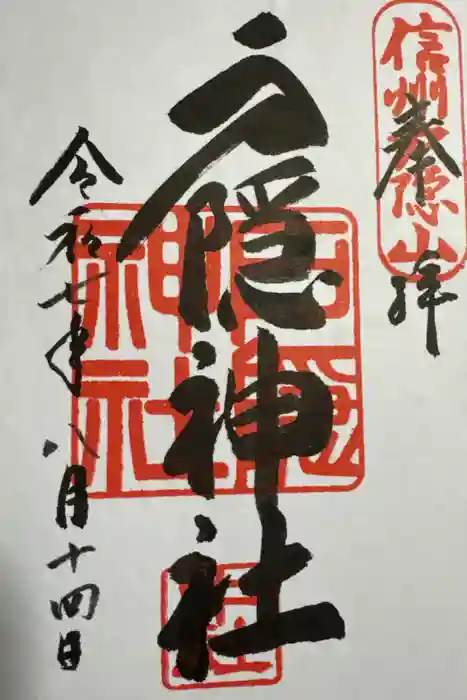 信州戸隠山
奉拝
戸隠神社
戸隠神社
令和七年八月十四日